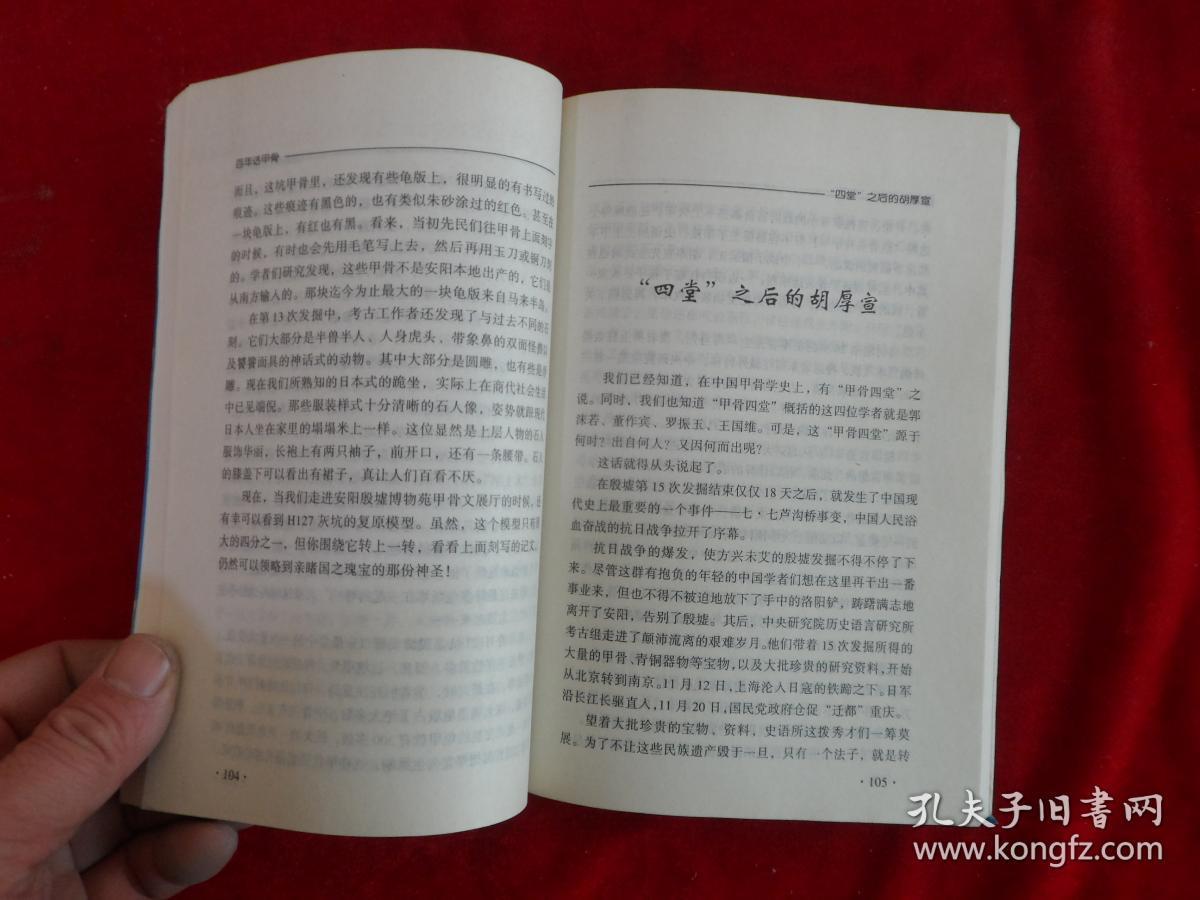 百年话甲骨
而且，这坑甲骨里，还发现有些龟版上，很明显的有书写过的
痕迹。这些痕迹有黑色的，也有类似朱砂涂过的红色。甚至在
一块龟版上，有红也有黑。看来，当初先民们往甲骨上面刻字
的时候，有时也会先用毛笔写上去，然后再用玉刀或铜刀刻
的。学者们研究发现，这些甲骨不是安阳本地出产的，它们是
从南方输入的。那块迄今为止最大的一块龟版来自马来半岛。
在第13次发掘中，考古工作者还发现了与过去不同的石
刻。它们大部分是半兽半人、人身虎头、带象鼻的双面怪兽以
及饕餮面具的神话式的动物。其中大部分是圆雕，也有些是浮
雕。现在我们所熟知的日本式的跪坐，实际上在商代社会生活
中已见端倪。那些服装样式十分清晰的石人像，姿势就跟现代
日本人坐在家里的塌塌米上一样。这位显然是上层人物的石人
服饰华丽，长袍上有两只袖子，前开口，还有一条腰带。石人
的膝盖下可以看出有裙子，真让人们百看不厌。
现在，当我们走进安阳殷墟博物苑甲骨文展厅的时候，还
有幸可以看到H127灰坑的复原模型。虽然，这个模型只有原
大的四分之一，但你围绕它转上一转，看看上面刻写的记文，
仍然可以领略到亲睹国之瑰宝的那份神圣！
·104·
“四堂”之后的胡厚宣
“四堂”之后的胡厚宣
我们已经知道，在中国甲骨学史上，有“甲骨四堂”之
说。同时，我们也知道“甲骨四堂”概括的这四位学者就是郭
沫若、董作宾、罗振玉、王国维。可是，这“甲骨四堂”源于
何时？出自何人？又因何而出呢？
这话就得从头说起了。
在殷墟第15次发掘结束仅仅18天之后，就发生了中国现
代史上最重要的一个事件——七·七芦沟桥事变，中国人民浴
血奋战的抗日战争拉开了序幕。
抗日战争的爆发，使方兴未艾的殷墟发掘不得不停了下
来。尽管这群有抱负的年轻的中国学者们想在这里再干出一番
事业来，但也不得不被迫地放下了手中的洛阳铲，踌躇满志地
离开了安阳，告别了殷墟。其后，中央研究院历史语言研究所
考古组走进了颠沛流离的艰难岁月。他们带着15次发掘所得的
大量的甲骨、青铜器物等宝物，以及大批珍贵的研究资料，开始
从北京转到南京。11月12日，上海沦入日寇的铁蹄之下。日军
沿长江长驱直入，11月20日，国民党政府仓促“迁都”重庆。
望着大批珍贵的宝物、资料，史语所这拨秀才们一筹莫
展。为了不让这些民族遗产毁于一旦，只有一个法子，就是转
·105·
孔夫子旧书网
www.kongfz.com